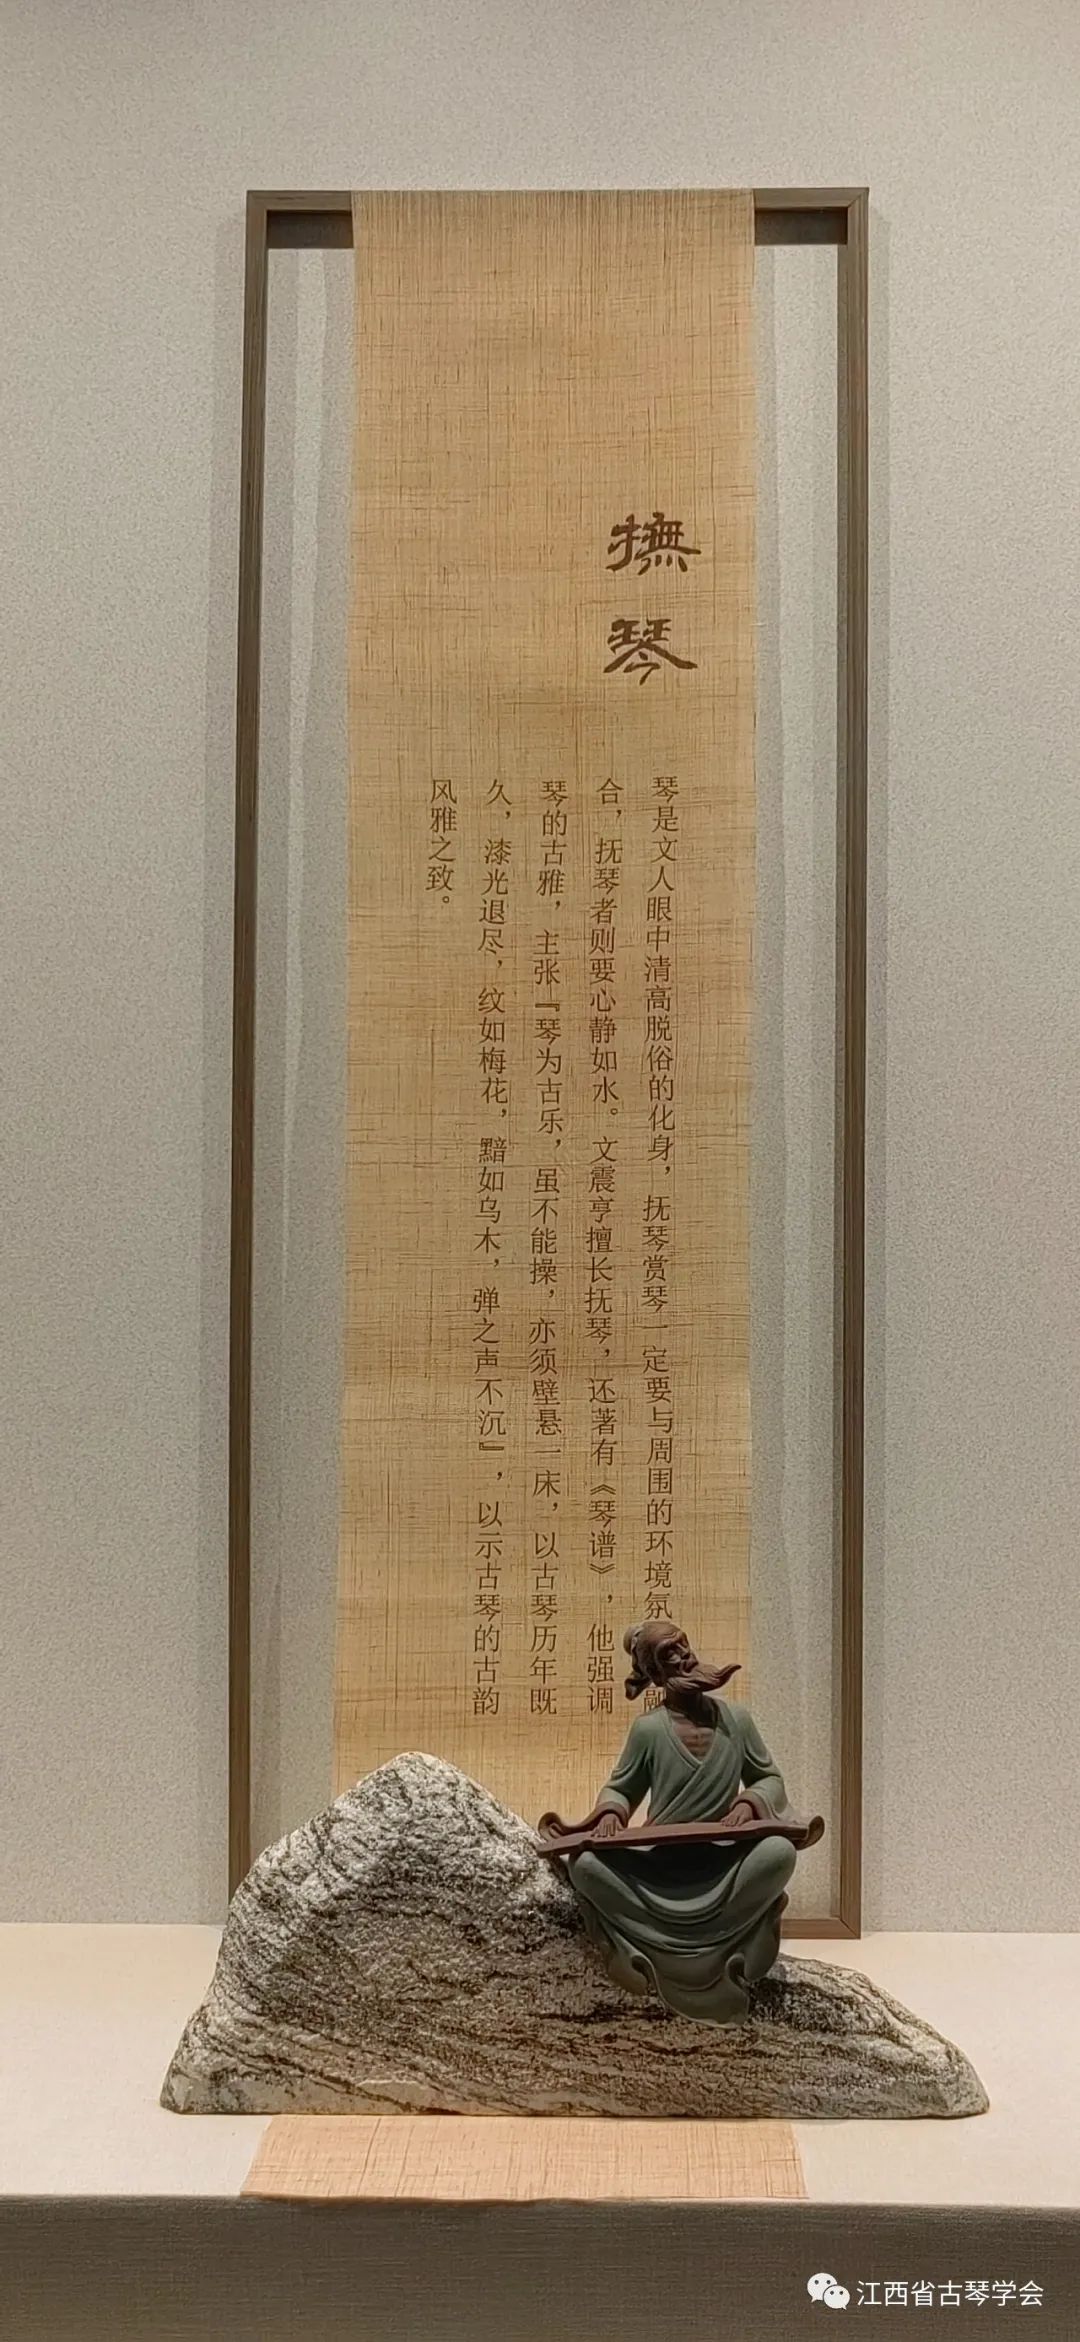 撫琴
琴是文人眼中清高脱俗的化身，抚琴赏琴一定要与周围的环境氛融
合，抚琴者则要心静如水。文震亨擅长抚琴，还著有《琴谱》，他强调
琴的古雅，主张『琴为古乐，虽不能操，亦须壁悬一床，以古琴历年既
久，漆光退尽，纹如梅花，黯如乌木，弹之声不沉』，以示古琴的古韵
风雅之致。
江西省古琴学会